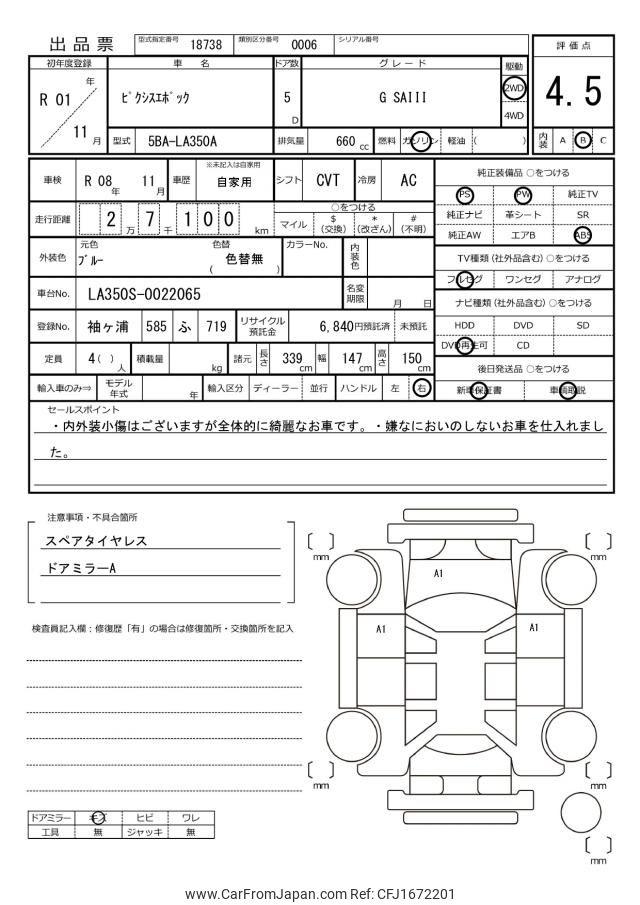 出品票 型式指定番号 18738 類別区分番号 0006 シリアル番号
評価点
4.5
内装 A B C
初年度登録 車名 ドア数 グレード 駆動
R 01 年 11 月 ピクシスエポック 5 D G SAIII 2WD 4WD
型式 5BA-LA350A 排気量 660 cc 燃料 ガソリン 軽油 ( )
車検 R 08 年 11 月 車歴 ※未記入は自家用 自家用 シフト CVT 冷房 AC
走行距離 2 万 7 千 1 0 0 km
○をつける
マイル $ (交換) * (改ざん) # (不明)
外装色 元色 ブルー 色替 ( 色替無 ) カラーNo. 内装色
車台No. LA350S-0022065 名変期限 月 日
登録No. 袖ヶ浦 585 ふ 719 リサイクル預託金 6,840円預託済 未預託
定員 4 ( ) 人 積載量 kg 諸元 長さ 339 cm 幅 147 cm 高さ 150 cm
輸入車のみ⇒ モデル年式 年 輸入区分 ディーラー 並行 ハンドル 左 右
純正装備品 ○をつける
PS PW 純正TV
純正ナビ 革シート SR
純正AW エアB ABS
TV種類 (社外品含む) ○をつける
フルセグ ワンセグ アナログ
ナビ種類 (社外品含む) ○をつける
HDD DVD SD
DVD再生可 CD
後日発送品 ○をつける
新車保証書 車輌取説
セールスポイント
・内外装小傷はございますが全体的に綺麗なお車です。・嫌なにおいのしないお車を仕入れまし
た。
注意事項・不具合箇所
スペアタイヤレス
ドアミラーA
検査員記入欄：修復歴「有」の場合は修復箇所・交換箇所を記入
[ ] mm
[ ] mm
A1
A1
A1
[ ] mm
[ ] mm
[ ] mm
ドアミラー キズ ヒビ ワレ
工具 無 ジャッキ 無
www.CarFromJapan.com Ref: CFJ1672201